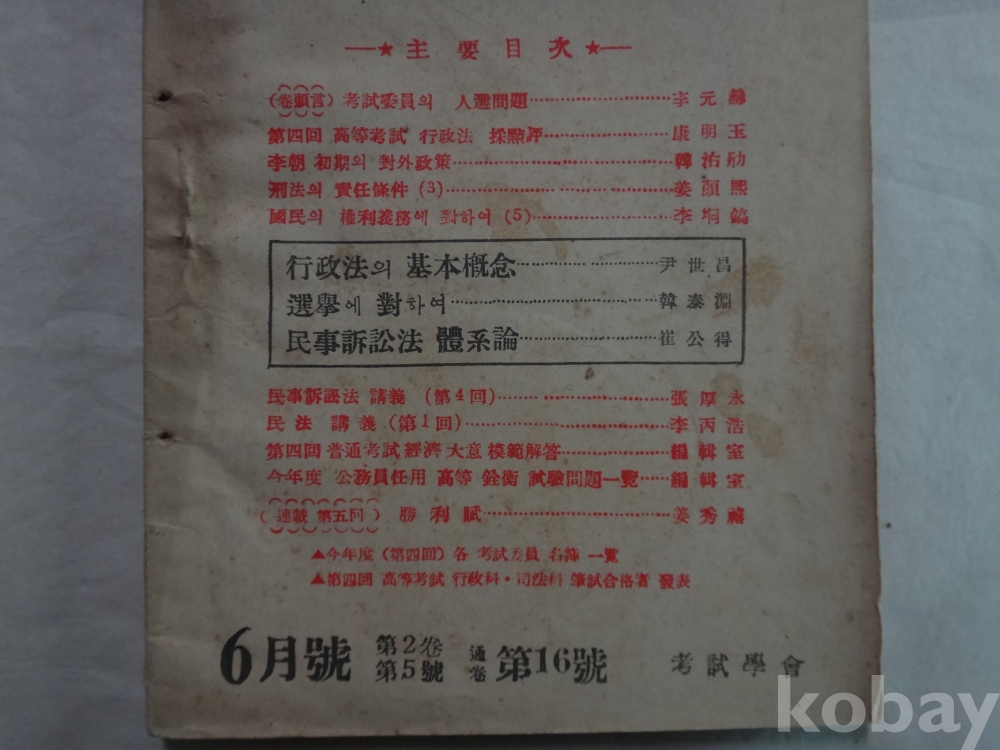 主要目次
(卷頭言) 考試委員의 人選問題 李元赫
第四回 高等考試 行政法 採點評 康明玉
李朝 初期의 對外政策 韓㳓劤
刑法의 責任條件 (3) 姜顔熙
國民의 權利義務에 對하여 (5) 李坰鎬
行政法의 基本槪念 尹世昌
選擧에 對하여 韓泰淵
民事訴訟法 體系論 崔公得
民事訴訟法 講義 (第4回) 張厚永
民法 講義 (第1回) 李丙浩
第四回 普通考試 經濟大意 模範解答 編輯室
今年度 公務員任用 高等 銓衡 試驗問題一覽 編輯室
(連載 第五回) 勝利賦 姜秀
▲今年度 (第四回) 各 考試委員 名錄 一覽
▲第四回 高等考試 行政科·司法科 筆試合格者 發表
6月號 第2卷 第5號 通卷 第16號 考試學會
kobay